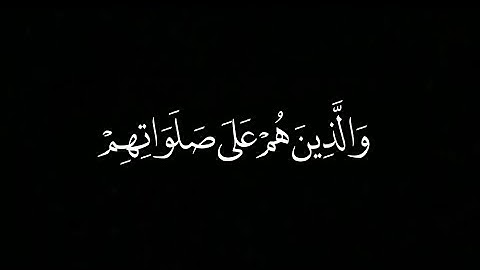 وَالَّذِينَ هُمْ عَلَى صَلَوَاتِهِمْ